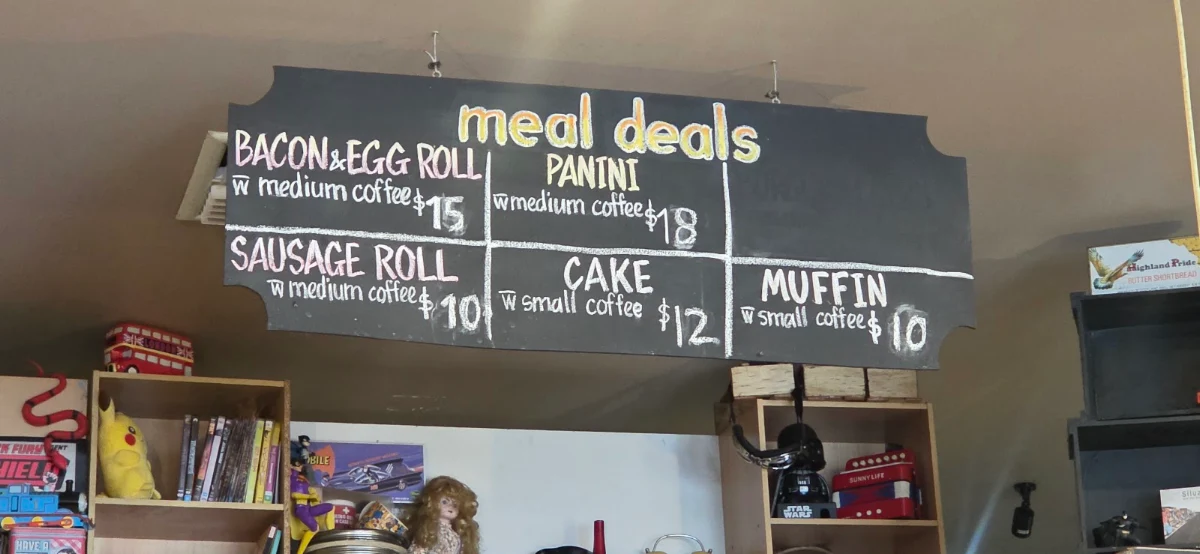 meal deals
BACON & EGG ROLL
w̅ medium coffee $15
PANINI
w̅ medium coffee $18
SAUSAGE ROLL
w̅ medium coffee $10
CAKE
w̅ small coffee $12
MUFFIN
w̅ small coffee $10
Highland Pride
BUTTER SHORTBREAD
SUNNYLIFE
STAR
WARS
HAVE A